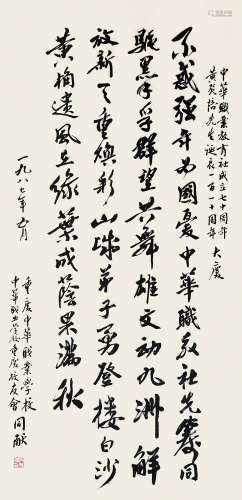 中華職業教育社成立七十周年
黄炎培先生誕辰一百一十周年 大慶
不惑强年为國憂中華職教社先籌同
驱黑手孚群望共舞雄文动九洲解
放新天重焕彩山城弟子勇登楼白沙
黄桷遗風在绿葉成蔭果满秋
一九八七年五月
重慶中華職業學校
中華職业学校重慶校友會 同献